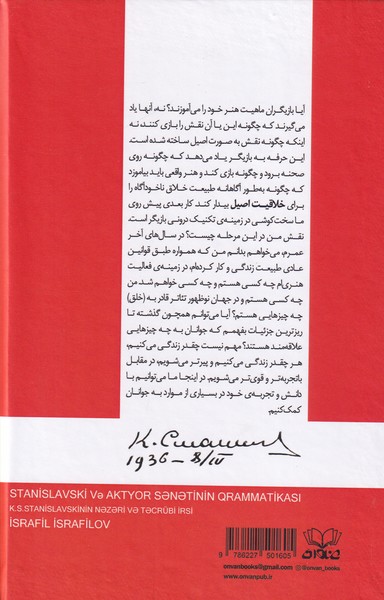 آیا بازیگران ماهیت هنر خود را می‌آموزند؟ نه، آنها یاد
می‌گیرند که چگونه این یا آن نقش را بازی کنند، نه
اینکه چگونه نقش به صورت اصیل ساخته شده است.
این حرفه به بازیگر یاد می‌دهد که چگونه روی
صحنه برود و چگونه بازی کند و هنر واقعی باید بیاموزد
که چگونه به‌طور آگاهانه طبیعت خلاق ناخودآگاه را
برای خلاقیت اصیل بیدار کند. کار بعدی پیش روی
ما سخت‌کوشی در زمینه‌ی تکنیک درونی بازیگر است.
نقش من در این مرحله چیست؟ در سال‌های آخر
عمرم، می‌خواهم بدانم من که همواره طبق قوانین
عادی طبیعت زندگی و کار کرده‌ام، در زمینه‌ی فعالیت
هنری‌ام چه کسی هستم و چه کسی خواهم شد. من
چه کسی هستم و در جهان نوظهور تئاتر قادر به (خلق)
چه چیزهایی هستم؟ آیا می‌توانم همچون گذشته تا
ریزترین جزئیات بفهمم که جوانان به چه چیزهایی
علاقه‌مند هستند؟ مهم نیست چقدر زندگی می‌کنیم،
هر چقدر زندگی می‌کنیم و پیرتر می‌شویم، در مقابل
باتجربه‌تر و قوی‌تر می‌شویم. در اینجا ما می‌توانیم با
دانش و تجربه‌ی خود در بسیاری از موارد به جوانان
کمک کنیم.
1936 – 8/IV
STANİSLAVSKİ Və AKTYOR SƏNƏTİNİN QRAMMATİKASI
K.S.STANİSLAVSKİNİN NƏZƏRİ VƏ TƏCRÜBİ İRSİ
İSRAFİL İSRAFİLOV
9 786227 501605
عنوان
onvanbooks@gmail.com @onvan_books
www.onvanpub.ir